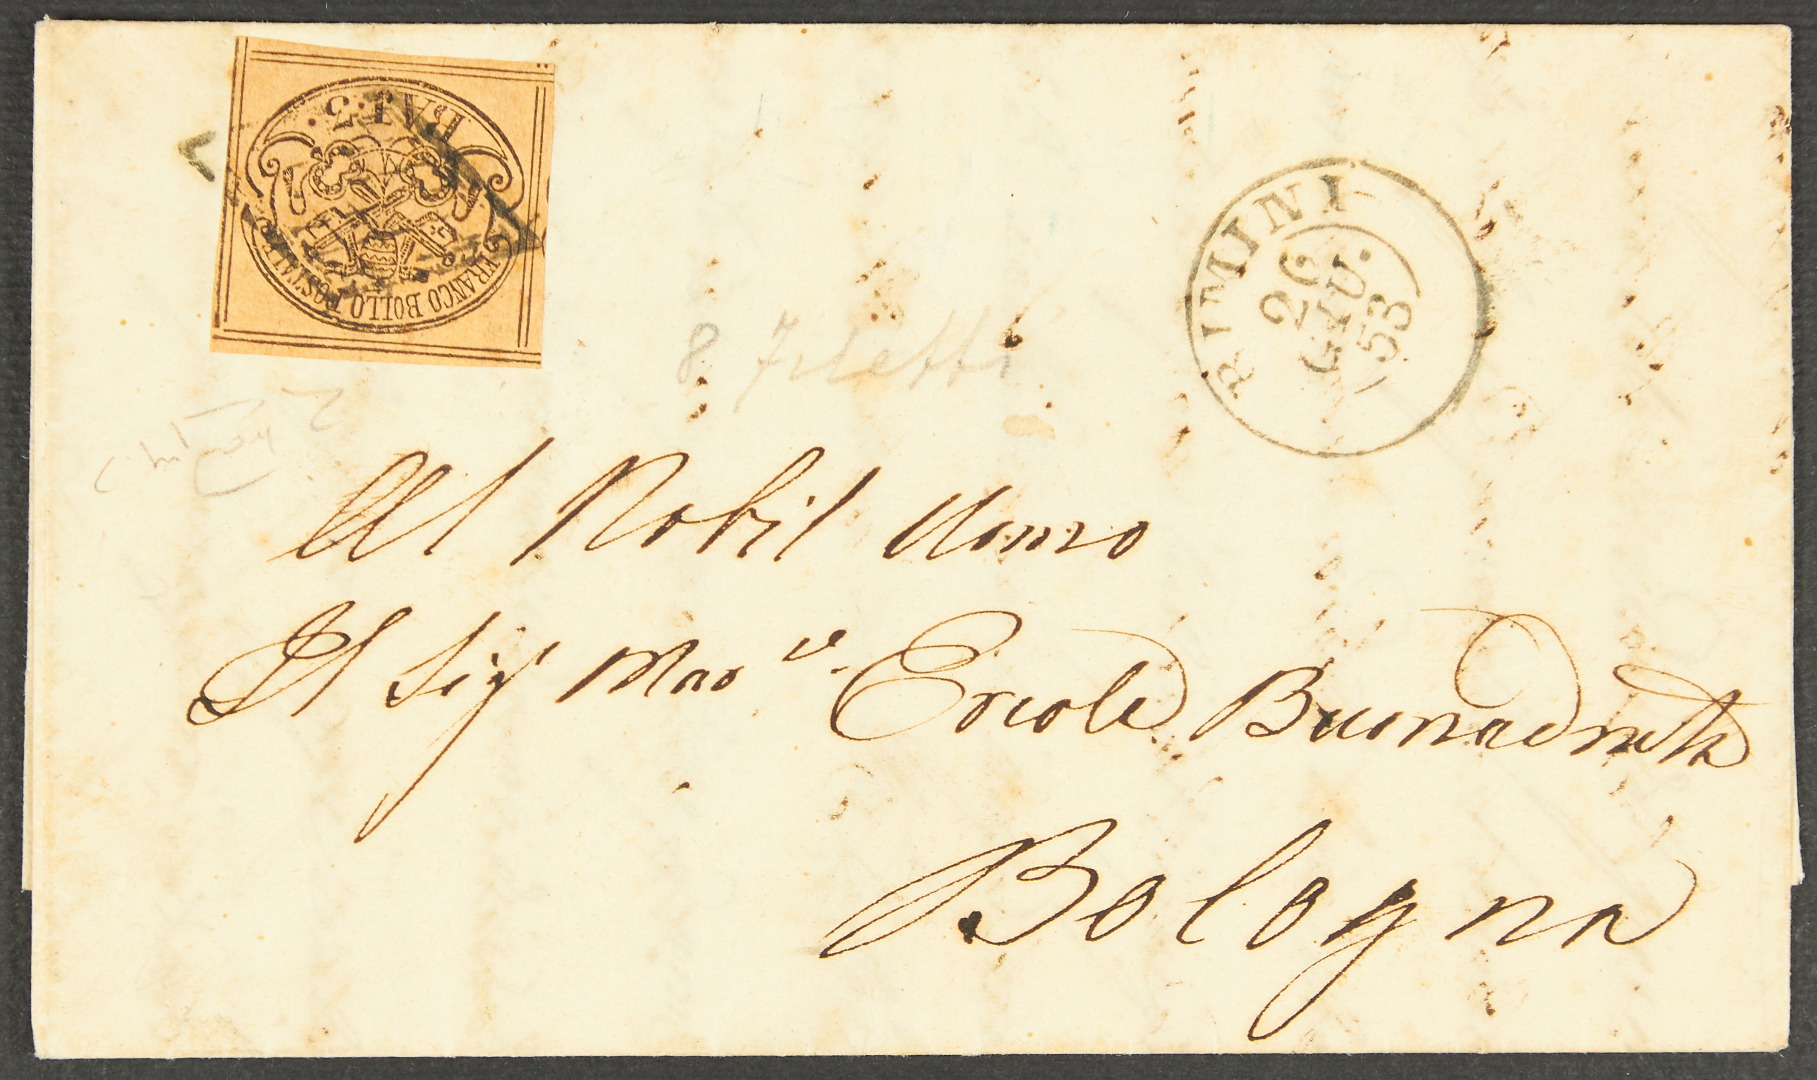 BAI. 3.
FRANCO BOLLO POSTALE
RIMINI
26
GIU.
53
8 filetti
Al Nobil Uomo
Il Sig.r Mar
Ercole
Bologna